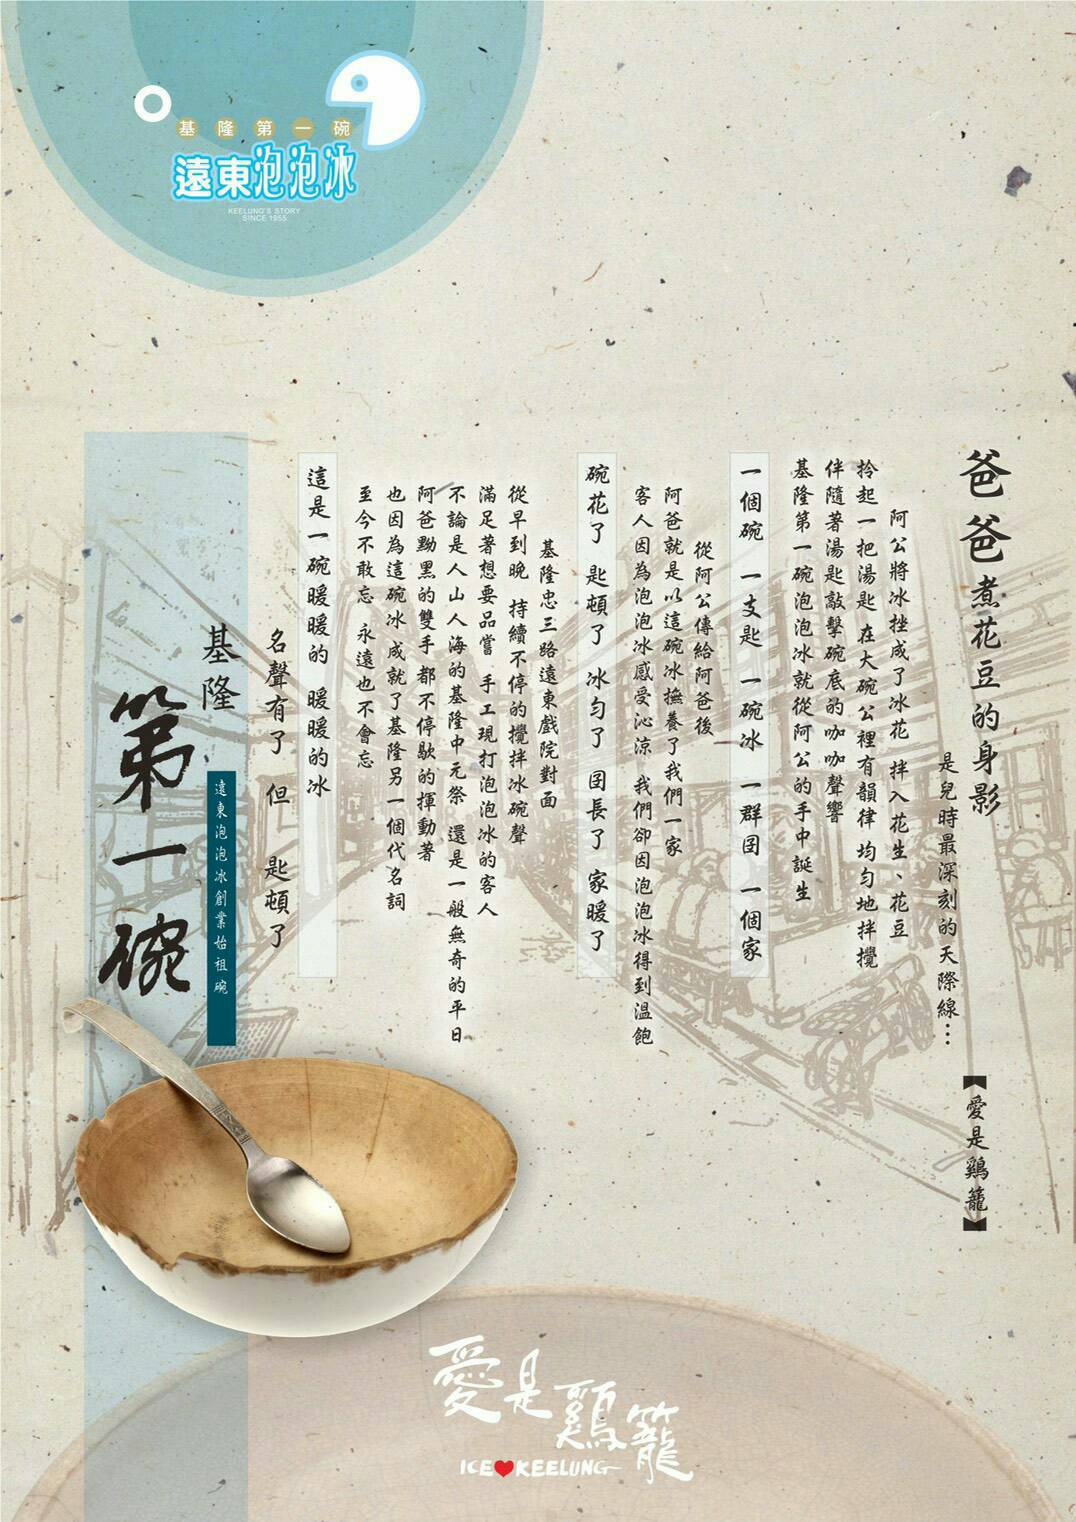 基隆第一碗
遠東泡泡冰
KEELUNG'S STORY
SINCE 1955
爸爸煮花豆的身影
是兒時最深刻的天際線…
【愛是鷄籠】
阿公將冰挫成了冰花 拌入花生、花豆
拎起一把湯匙 在大碗公裡有韻律 均勻地拌攪
伴隨著湯匙敲擊碗底的咖咖聲響
基隆第一碗泡泡冰就從阿公的手中誕生
一個碗 一支匙 一碗冰 一群囝 一個家
從阿公傳給阿爸後
阿爸就是以這碗冰撫養了我們一家
客人因為泡泡冰感受沁涼 我們卻因泡泡冰得到溫飽
碗花了 匙頓了 冰勻了 囝長了 家暖了
基隆忠三路遠東戲院對面
從早到晚 持續不停的攪拌冰碗聲
滿足著想要品嘗 手工現打泡泡冰的客人
不論是人山人海的基隆中元祭 還是一般無奇的平日
阿爸黝黑的雙手 都不停歇的揮動著
也因為這碗冰 成就了基隆另一個代名詞
至今不敢忘 永遠也不會忘
這是一碗暖暖的 暖暖的冰
名聲有了 但 匙頓了
基隆
遠東泡泡冰創業始祖碗
第一碗
愛是鷄籠
ICE KEELUNG